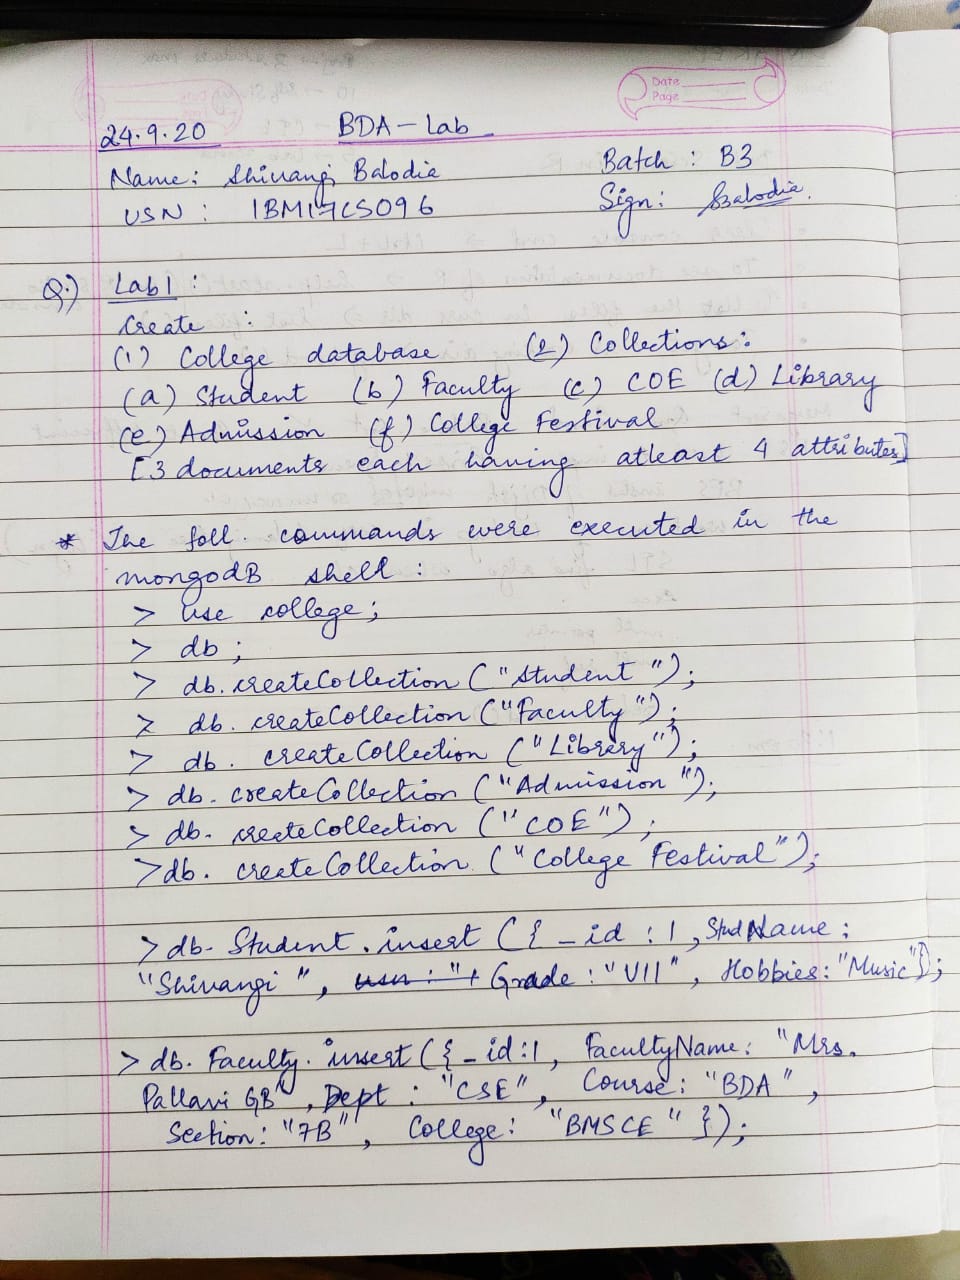 Date
Page
24.9.20 BDA-Lab
Name: Shivangi Balodia Batch : B3
USN : 1BM17CS096 Sign: Balodia
Q.) Lab1 :
Create :
(1) College database (2) Collections:
(a) Student (b) Faculty (c) COE (d) Library
(e) Admission (f) College Festival
[3 documents each having atleast 4 attributes]
* The foll. commands were executed in the
mongodB shell :
> use college;
> db ;
> db.createCollection ("Student");
> db. createCollection ("Faculty");
> db. createCollection ("Library");
> db. createCollection ("Admission");
> db. createCollection ("COE");
>db. createCollection ("College Festival");
> db. Student .insert ({ _id : 1, StudName :
"Shivangi", usn : "1 Grade : "VII", Hobbies: "Music"});
> db. Faculty. insert ({_id:1, FacultyName: "Mrs.
Pallavi GB", Dept : "CSE", Course: "BDA",
Section: "7B", College: "BMSCE" });